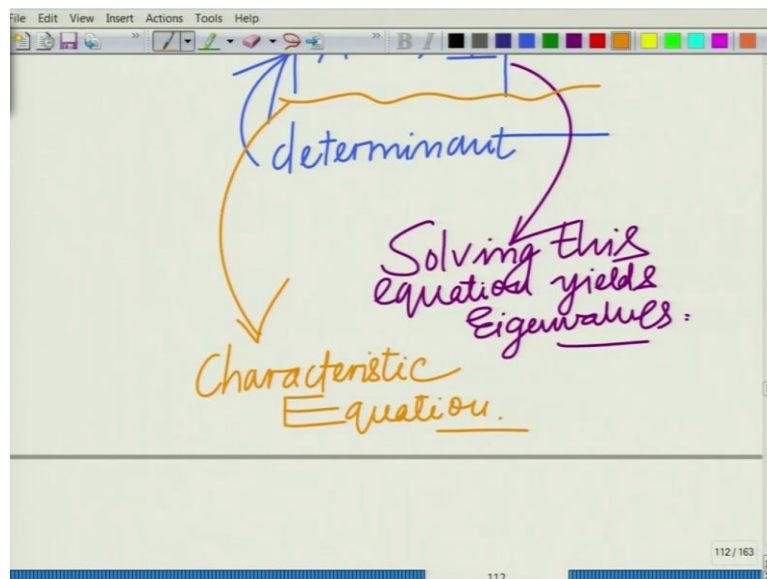 File Edit View Insert Actions Tools Help
B I
determinant
Solving this
equation yields
Eigenvalues.
Characteristic
Equation.
112 / 163
112